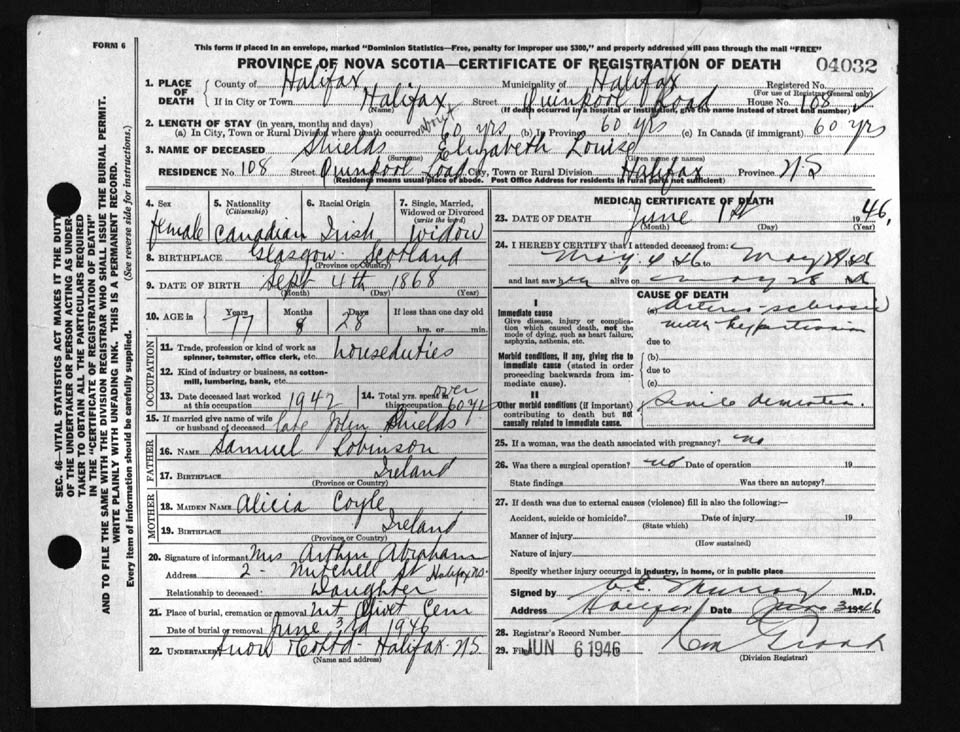 FORM 6
This form if placed in an envelope, marked "Dominion Statistics—Free, penalty for improper use $300," and properly addressed will pass through the mail "FREE"
PROVINCE OF NOVA SCOTIA—CERTIFICATE OF REGISTRATION OF DEATH 04032
1. PLACE OF DEATH County of Halifax Municipality of Halifax Registered No.
(For use of Registrar General only)
If in City or Town Halifax Street Quinpool Road House No. 108
(Name) (If death occurred in a hospital or institution, give the name instead of street and number)
2. LENGTH OF STAY (in years, months and days)
(a) In City, Town or Rural Division where death occurred about 60 yrs (b) In Province 60 yrs (c) In Canada (if immigrant) 60 yrs
3. NAME OF DECEASED Shields Elizabeth Louise
(Surname) (Given name or names)
RESIDENCE No. 108 Street Quinpool Road City, Town or Rural Division Halifax Province NS
(Residence means usual place of abode. Post Office Address for residents in rural parts not sufficient)
4. Sex female
5. Nationality (Citizenship) Canadian
6. Racial Origin Irish
7. Single, Married, Widowed or Divorced (write the word) Widow
8. BIRTHPLACE Glasgow Scotland
(Province or Country)
9. DATE OF BIRTH Sept 4th 1868
(Month) (Day) (Year)
10. AGE in Years Months Days If less than one day old
77 8 28 hrs. or min.
OCCUPATION
11. Trade, profession or kind of work as spinner, teamster, office clerk, etc. houseduties
12. Kind of industry or business, as cotton-mill, lumbering, bank, etc.
13. Date deceased last worked at this occupation 1942
14. Total yrs. spent in this occupation over 60 yrs
15. If married give name of wife or husband of deceased late John Shields
FATHER
16. NAME Samuel Robinson
17. BIRTHPLACE Ireland
(Province or Country)
MOTHER
18. MAIDEN NAME Alicia Coyle
19. BIRTHPLACE Ireland
(Province or Country)
20. Signature of informant Mrs Arthur Abraham
Address 2 - Mitchell St Halifax N.S.
Relationship to deceased Daughter
21. Place of burial, cremation or removal Mt Olivet Cem
Date of burial or removal June 3rd 1946
22. UNDERTAKER Snow & Co Ltd - Halifax NS
(Name and address)
MEDICAL CERTIFICATE OF DEATH
23. DATE OF DEATH June 1st 1946
(Month) (Day) (Year)
24. I HEREBY CERTIFY that I attended deceased from:
May 4 1946 to May 28 1946
and last saw her alive on May 28 1946
CAUSE OF DEATH
I
Immediate cause
Give disease, injury or complication which caused death, not the mode of dying, such as heart failure, asphyxia, asthenia, etc.
(a) Arterio-sclerosis
with hypertension
due to
Morbid conditions, if any, giving rise to immediate cause (stated in order proceeding backwards from immediate cause).
(b)
due to
(c)
II
Other morbid conditions (if important) contributing to death but not causally related to immediate cause.
Senile dementia.
25. If a woman, was the death associated with pregnancy? no
26. Was there a surgical operation? no Date of operation 19
State findings Was there an autopsy?
27. If death was due to external causes (violence) fill in also the following:—
Accident, suicide or homicide? Date of injury 19
(State which)
Manner of injury
(How sustained)
Nature of injury
Specify whether injury occurred in industry, in home, or in public place
Signed by Murray M.D.
Address Halifax Date June 3 1946
28. Registrar's Record Number
29. Filed JUN 6 1946
(Division Registrar)
SEC. 46—VITAL STATISTICS ACT MAKES IT THE DUTY
OF THE UNDERTAKER OR PERSON ACTING AS UNDER-
TAKER TO OBTAIN ALL THE PARTICULARS REQUIRED
IN THE "CERTIFICATE OF REGISTRATION OF DEATH"
AND TO FILE THE SAME WITH THE DIVISION REGISTRAR WHO SHALL ISSUE THE BURIAL PERMIT.
WRITE PLAINLY WITH UNFADING INK. THIS IS A PERMANENT RECORD.
Every item of information should be carefully supplied. (See reverse side for instructions.)